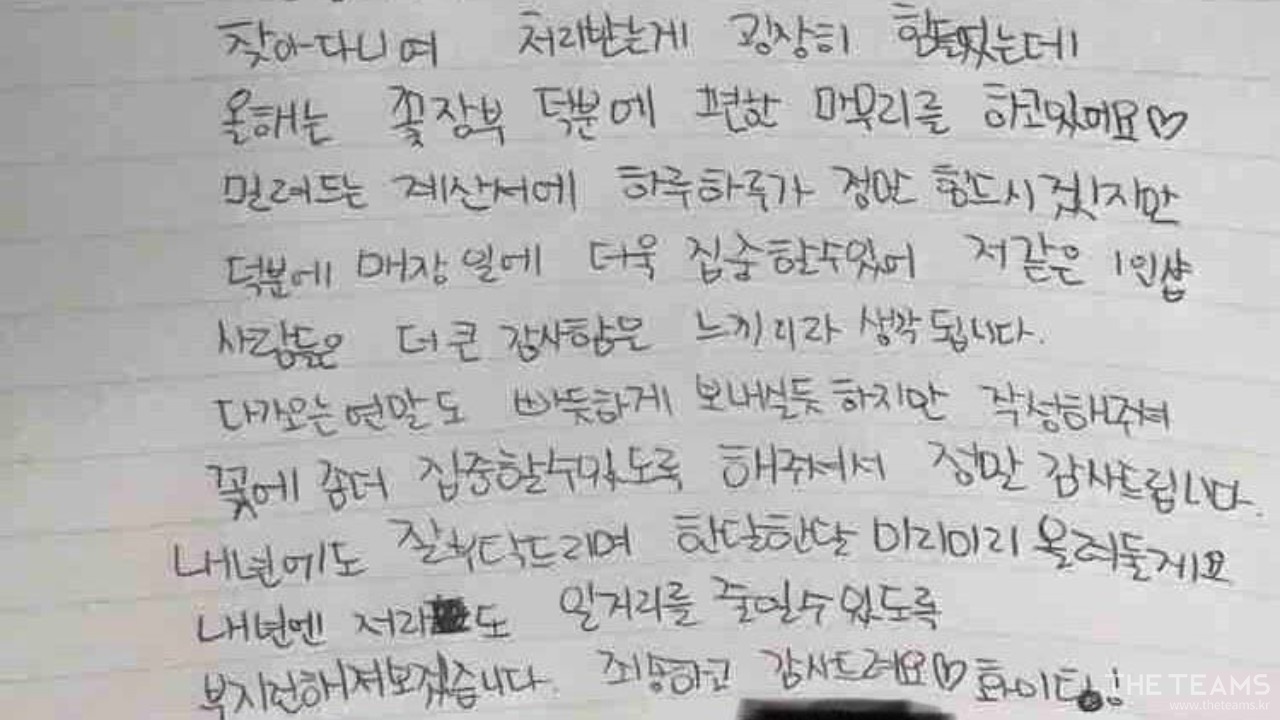 찾아다니며 처리받는게 굉장히 힘들었는데
올해는 꽃장부 덕분에 편한 마무리를 하고있어요♡
밀려드는 계산서에 하루하루가 정말 힘드시겠지만
덕분에 매장일에 더욱 집중할수있어 저같은 1인샵
사람들은 더큰 감사함은 느끼리라 생각됩니다.
다가오는연말도 빠듯하게 보내실듯하지만 작성해주셔
꽃에 좀더 집중할수있도록 해주셔서 정말 감사드립니다.
내년에도 잘부탁드리며 한달한달 미리미리 올려둘게요
내년엔 저라도 일거리를 줄일수있도록
부지런해져보겠습니다. 죄송하고 감사드려요♡ 화이팅!
THE TEAMS
www.theteams.kr